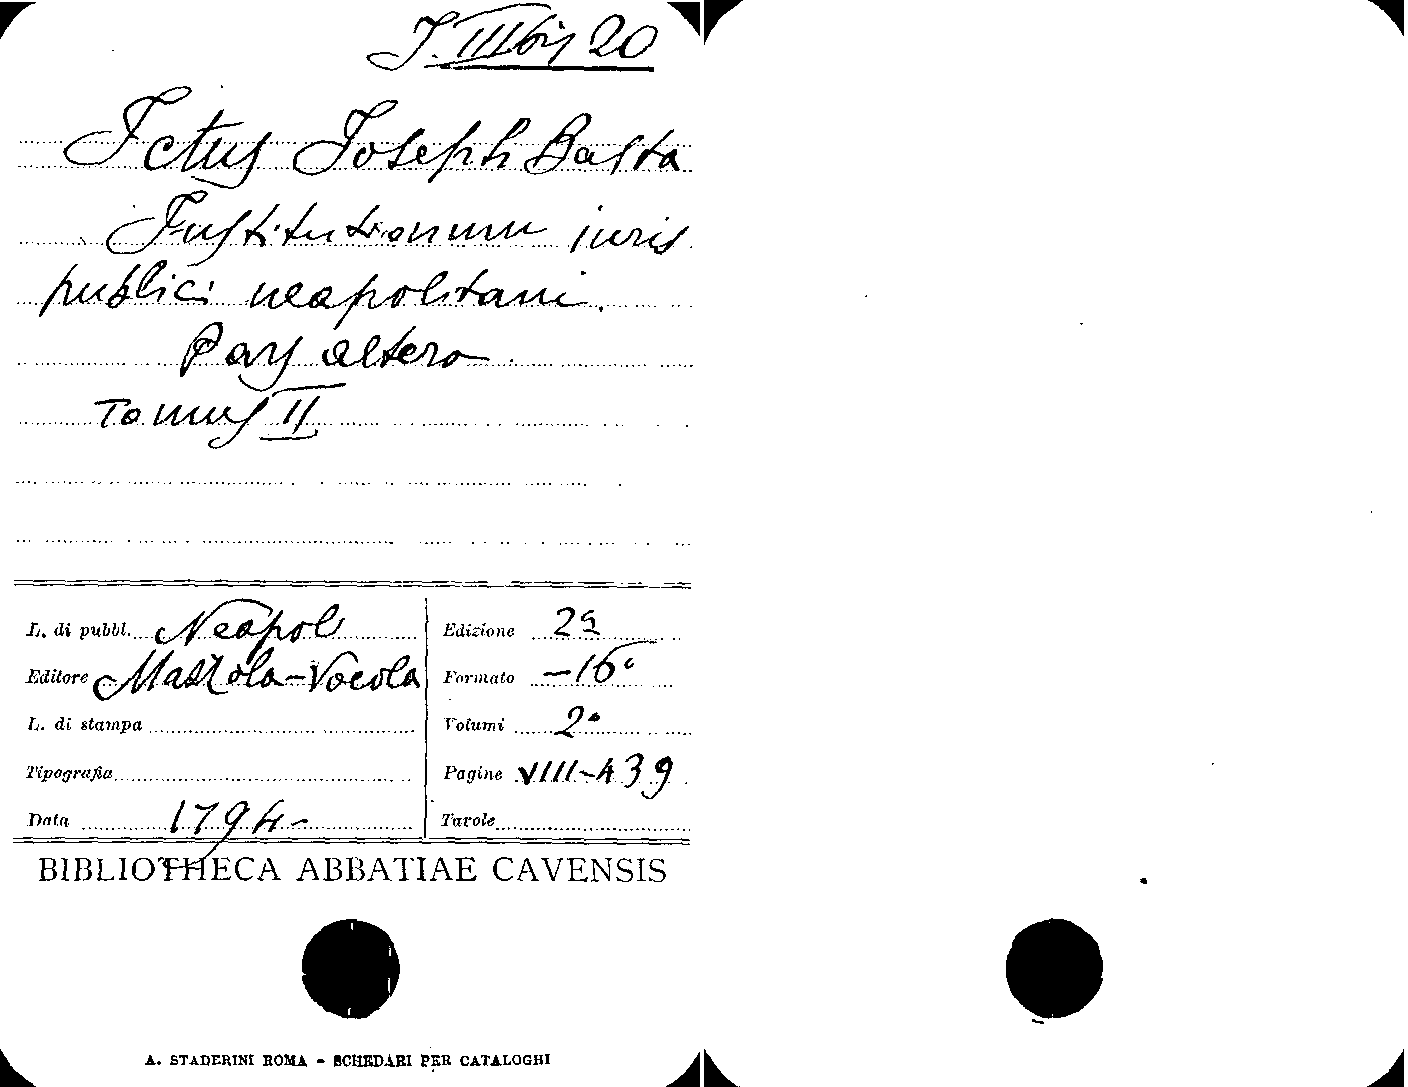 I. III bis 20
Ictus Joseph Basta
Institutionum iuris
publici neapolitani.
Pars altera.
Tomus II
L. di pubbl. Neapoli
Edizione 2ª
Editore Mazzola-Vocola
Formato -16°
L. di stampa
Volumi 2°
Tipografia
Pagine VIII-439
Data 1794-
Tavole
BIBLIOTHECA ABBATIAE CAVENSIS
A. STADERINI ROMA - SCHEDARI PER CATALOGHI